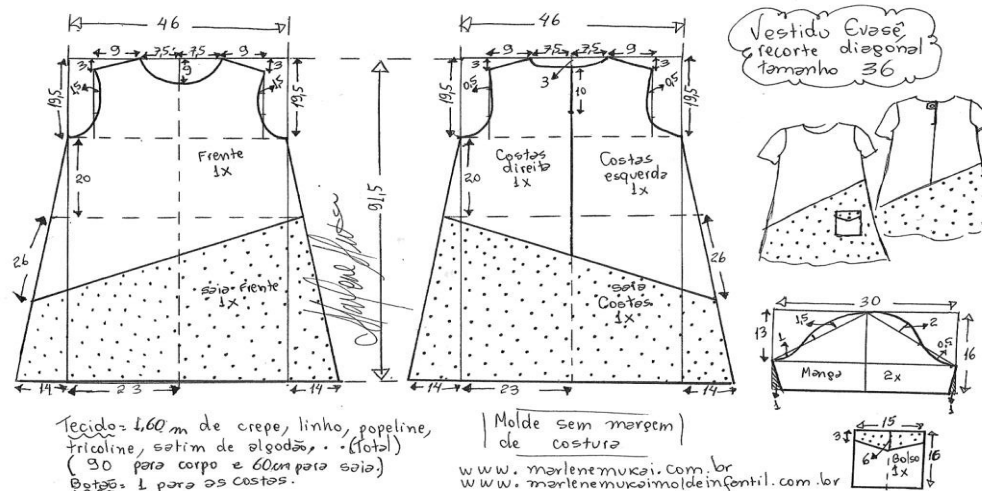 46
9 7,5 7,5 9
3 9 3
1,5 1,5
19,5 19,5
Frente
1x
20
26
saia-Frente
1x
14 23 14
91,5
46
9 7,5 7,5 9
3 3 3
10
0,5 0,5
19,5 19,5
Costas
direita
1x
Costas
esquerda
1x
20
26
saia
Costas
1x
14 23 14
Vestido Evasê,
recorte diagonal
tamanho 36
30
13 1,5 2 16
1 0,5
Manga 2x
1 1
15
3 16
6 Bolso
1x
Tecido = 1,60 m de crepe, linho, popeline,
tricoline, satim de algodão, ... (total)
( 90 para corpo e 60cm para saia.)
Botão = 1 para as costas.
Molde sem margem
de costura
www.marlenemukai.com.br
www.marlenemukaimoldeinfantil.com.br